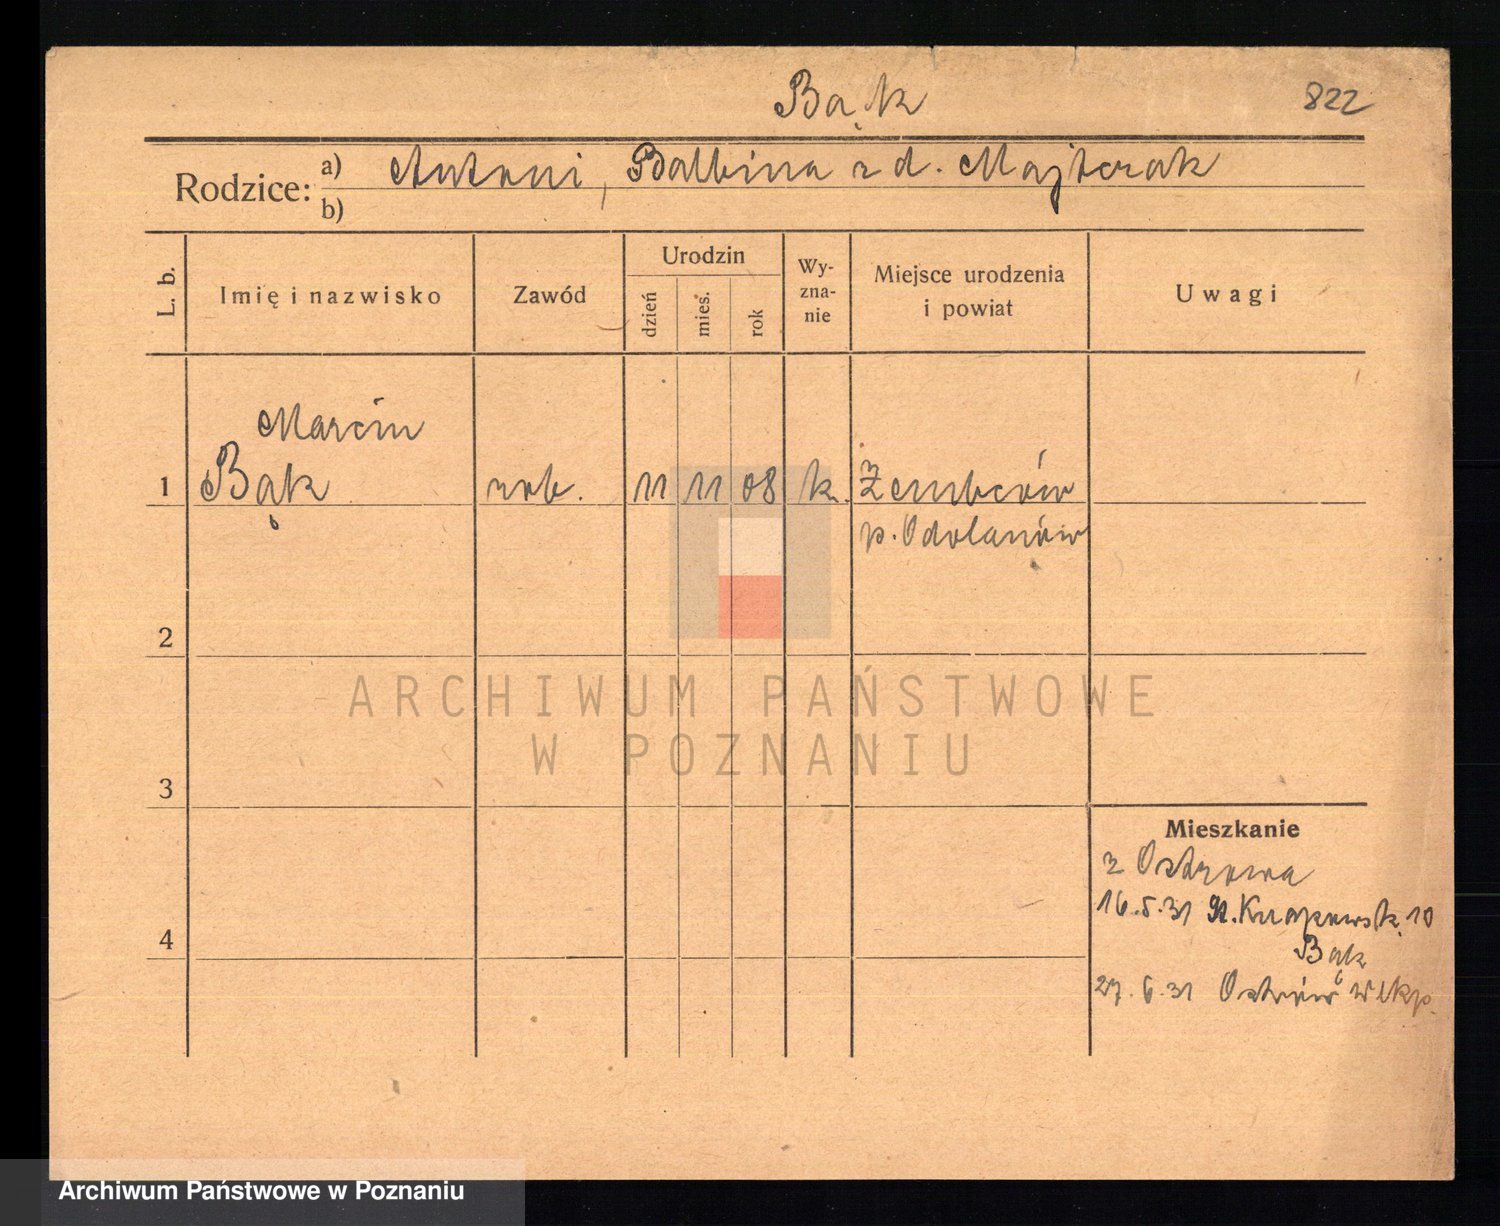 Bąk 822
Rodzice: a) Antoni, Balbina z d. Majtczak
b)
L. b. Imię i nazwisko Zawód Urodzin dzień mies. rok Wy-zna-nie Miejsce urodzenia i powiat Uwagi
Marcin
1 Bąk rob. 11 11 08 k. Zembców
p. Odolanów
2
ARCHIWUM PAŃSTWOWE
W POZNANIU
3
Mieszkanie
z Ostrowa
16.5.31 10
4
Bąk
27.6.31 Ostrów Wlkp.
Archiwum Państwowe w Poznaniu